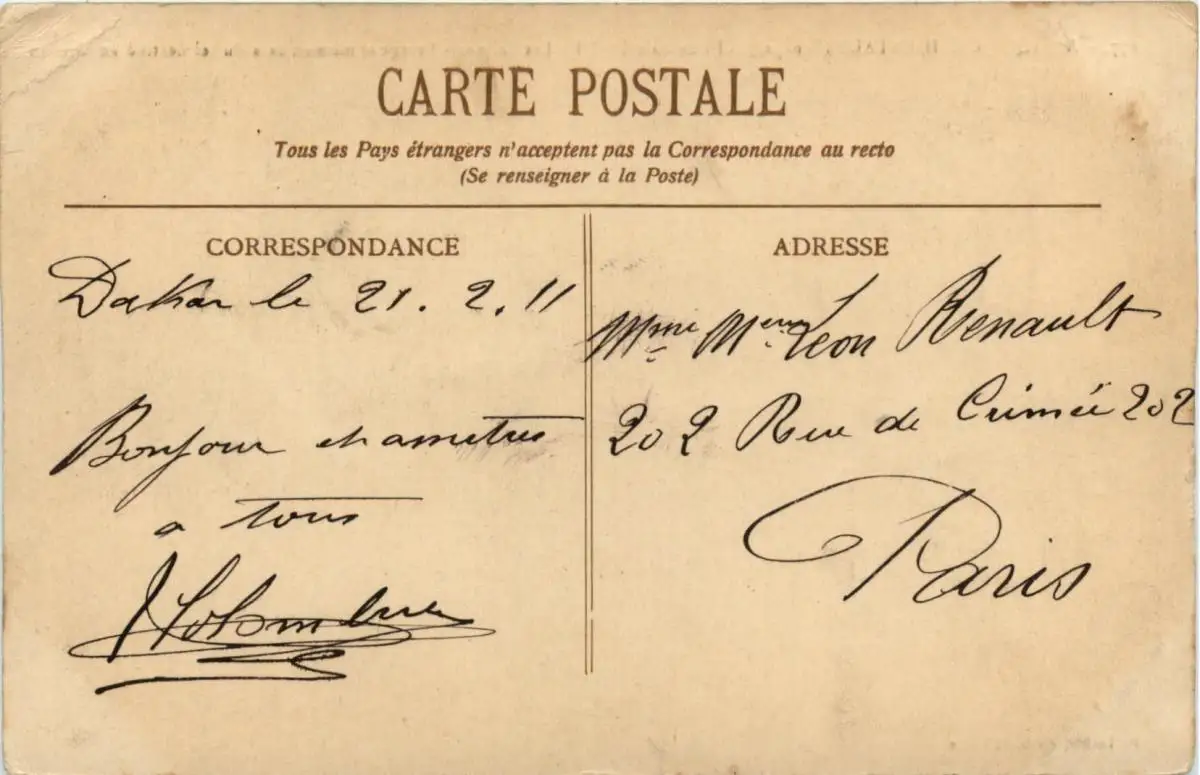 CARTE POSTALE
Tous les Pays étrangers n'acceptent pas la Correspondance au recto
(Se renseigner à la Poste)
CORRESPONDANCE
Dakar le 21.2.11
Bonjour et amitiés
a tous
ADRESSE
Mme Léon Renault
202 Rue de Crimée 202
Paris